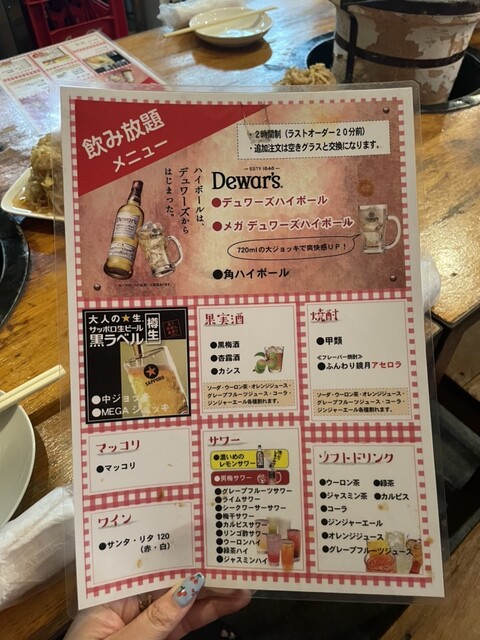 飲み放題
メニュー
・2時間制（ラストオーダー20分前）
・追加注文は空きグラスと交換になります。
ハイボールは、
デュワーズから
はじまった。
ESTD 1846
Dewar's.
●デュワーズハイボール
●メガ デュワーズハイボール
720mlの大ジョッキで爽快感UP！
●角ハイボール
大人の★生。
サッポロ生ビール
黒ラベル
樽生
SAPPORO
●中ジョッキ
●MEGA ジョッキ
果実酒
●黒梅酒
●杏露酒
●カシス
ソーダ・ウーロン茶・オレンジジュース・
グレープフルーツジュース・コーラ・
ジンジャーエール各種割れます。
焼酎
●甲類
≪フレーバー焼酎≫
●ふんわり鏡月アセロラ
ソーダ・ウーロン茶・オレンジジュース・
グレープフルーツジュース・コーラ・
ジンジャーエール各種割れます。
マッコリ
●マッコリ
ワイン
●サンタ・リタ 120
（赤・白）
サワー
●濃いめの
レモンサワー
●男梅サワー
●グレープフルーツサワー
●ライムサワー
●シークヮーサーサワー
●梅干サワー
●カルピスサワー
●リンゴ酢サワー
●ウーロンハイ
●緑茶ハイ
●ジャスミンハイ
ソフトドリンク
●ウーロン茶 ●緑茶
●ジャスミン茶 ●カルピス
●コーラ
●ジンジャーエール
●オレンジジュース
●グレープフルーツジュース